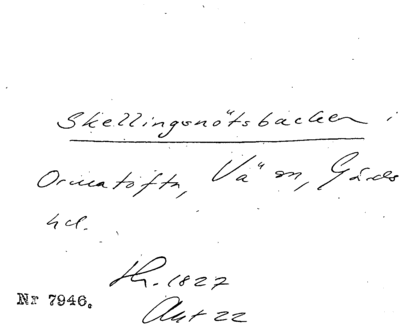 Skellingsnötsbacken i
Ormatofta, Vä sn, Gärds
hd.
Nr 7946.
Akt 22